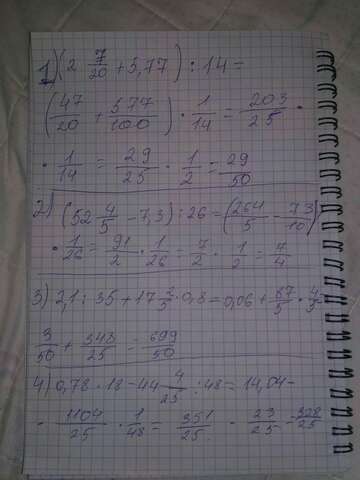 1) (2 7/20 + 5,77) : 14 =
(47/20 + 577/100) · 1/14 = 203/25 ·
· 1/14 = 29/25 · 1/2 = 29/50
2) (52 4/5 - 7,3) : 26 = (264/5 - 73/10)
· 1/26 = 91/2 · 1/26 = 7/2 · 1/2 = 7/4
3) 2,1 : 35 + 17 2/5 · 0,8 = 0,06 + 87/5 · 4/5
3/50 + 348/25 = 699/50
4) 0,78 · 18 - 44 4/25 : 48 = 14,04 -
- 1104/25 · 1/48 = 351/25 - 23/25 = 328/25